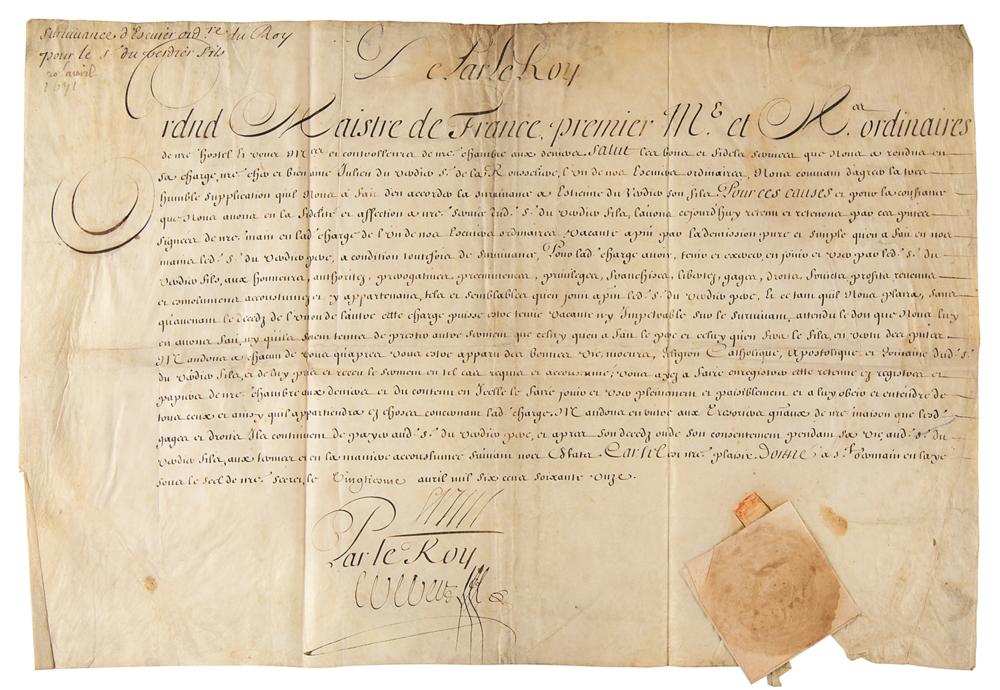 Survivance d'Escuier ord.re du Roy
pour le s.r du verdier fils
20 avril
1671
De Par Le Roy
Grand Maistre de France, premier M.e et M.res ordinaires
de nre hostel et vous M.res et controlleurs de nre chambre aux deniers Salut les bons et fidels services que Nous a rendus en
sa charge, nre cher et bien amé Julien du verdier s.r de la Rousseliere, l'un de nos Escuiers ordinaires, Nous conviant d'agreer la tres
humble supplication qu'il Nous a fait d'en accorder la survivance a Estienne du Verdier son fils. Pour ces causes et pour la confiance
que Nous avons en la fidelité et affection a nre service dud. s.r du verdier fils, l'avons cejourd'huy retenu et retenons par ces pntes
signées de nre main en lad. charge de l'un de nos Escuiers ordinaires, vacante a pnt par la demission pure et simple qu'en a fait en nos
mains led. s.r du verdier pere, a condition toutesfois de survivance, Pour lad. charge avoir, tenir et exercer en jouir et user par led. s.r du
verdier fils, aux honneurs, authoritez, prerogatives, preeminences, privileges, franchises, libertez, gages, droits, fruicts, profits, revenus
et emolumens accoustumez et y appartenans, tels et semblables qu'en jouit a pnt led. s.r du verdier pere, Et ce tant qu'il Nous plaira, sans
qu'avenant le decedz de l'un ou de l'autre cette charge puisse estre tenue vacante ny Impetrable sur le survivant, attendu le don que Nous luy
en avons fait, ny qu'ils soient tenus de prester autre serment que celuy qu'en a fait le pere et celuy qu'en fera le fils, en vertu des pntes
Mandons a chacun de vous qu'apres vous estre apparu des bonnes vie, moeurs, Religion Catholique, Apostolique et Romaine dud. s.r
du verdier fils, et de luy pris et receu le serment en tel cas requis et accoustumé; vous ayez a faire enregistrer cette retenue ez registres et
papiers de nre chambre aux deniers et du contenu en Icelle le faire jouir et user plenement et paisiblement et a luy obeir et entendre de
tous ceux et ainsy qu'il appartiendra ez choses concernant lad. charge. Mandons en outre aux Tresoriers g'naux de nre maison que lesd.
gages et droits Ils continuent de payer aud. s.r du verdier pere, et apres son decedz ou de son consentement pendant sa vie, aud. s.r du
verdier fils, aux termes et en la maniere accoustumée suivant nos Estats. Car tel est nre plaisir. Donné a S.t Germain en laye
sous le seel de nre secret, le vingtiesme avril mil six cens soixante unze.
Louis
Par le Roy
Colbert